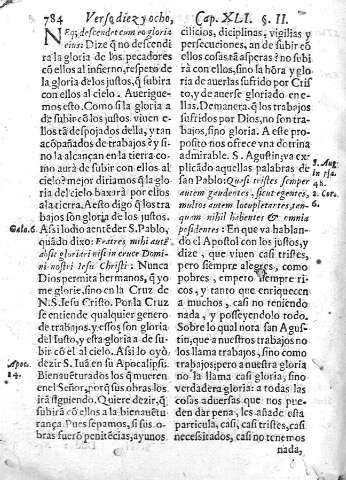 784 Verso diez y ocho, Cap. XLI. §. II.
Neq; descendet cum eo gloria
eius: Dize q̃ no descendi
ra la gloria de los pecadores
cõ ellos al infierno, respeto de
la gloria delos justos, q̃ subira
con ellos al cielo. Aueriguemos
esto. Como si la gloria a
de subir cõ los justos viuen e
llos tã despojados della, y tan
acõpañados de trabajos? y si
no la alcançan en la tierra como
aurà de subir con ellos
al cielo? mejor diriamos q̃ la
gloria del cielo baxarà por ellos
a la tierra. A esto digo q̃ los tra
bajos son gloria de los justos.
Gala. 6. Assi lo dio a entẽder S. Pablo,
quãdo dixo: Fratres mihi autẽ
absit gloriari nisi in cruce Domi
ni nostri Iesu Christi: Nunca
Dios permita hermanos, q̃ yo
me glorie, sino en la Cruz de
N. S. Iesu Cristo. Por la Cruz
se entiende qualquier genero
de trabajos, y essos son gloria
del Iusto, y esta gloria a de su-
bir cõ el al cielo. Assi lo oyò,
Apoc. 14. dezir S. Iuã en su Apocalipsi:
Bienauẽturados los q̃ mueren
en el Señor, porq̃ sus obras los
irà siguiendo. Quiere dezir, q̃
subirà cõ ellos a la bienauẽtu
rança. Pues sepamos, si sus o
bras fuerõ penitẽcias, ayunos
cilicios, diciplinas, vigilias y
persecuciones, an de subir cõ
ellos cosas tã asperas? no subi
rà con ellos, sino la hõra y glo
ria de auerlas sufrido por Cris
to, y de auerse gloriado en e-
llas. Demanera, q̃ los trabajos
sufridos por Dios, no son tra
bajos, sino gloria. A este pro
posito nos ofrece vna dotrina
admirable. S. Agustin, va ex
S. Aug. in psa. 48. plicãdo aquellas palabras de
san Pablo: Quasi tristes semper
2. Cor. 6. autem gaudentes, sicut egentes,
multos autem locupletantes, tan
quam nihil habentes & omnia
possidentes: En que va hablan-
do el Apostol con los justos, y
dize, que viuen casi tristes,
pero siempre alegres, como
pobres, empero siempre ri-
cos, y tanto que enriquecen
a muchos, casi no teniendo
nada, y posseyendolo todo.
Sobre lo qual nota san Agus-
tin, que a nuestros trabajos no
los llama trabajos, sino como
trabajos; pero a nuestra gloria
no la llama casi gloria, sino
verdadera gloria: a todas las
cosas aduersas que nos pue
den dar pena, les añade esta
particula, casi, casi tristes, casi
necessitados, casi no tenemos
nada,